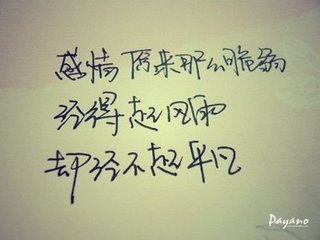 感情原来那么脆弱
经得起风雨
却经不起平凡
Payano